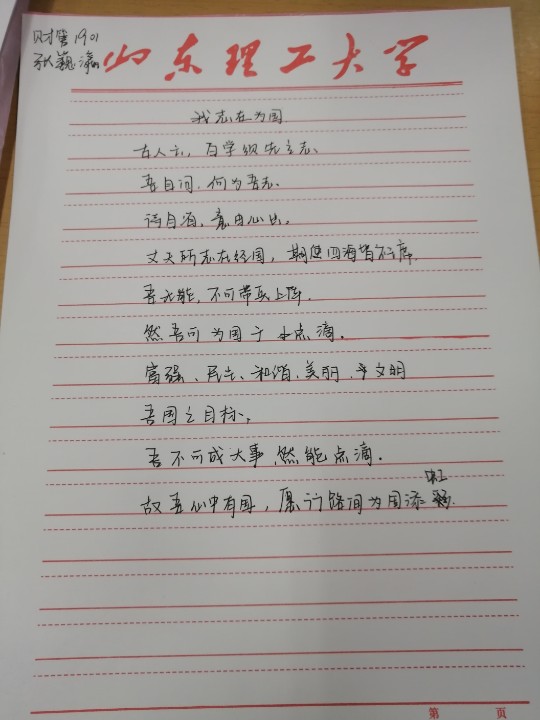 财管1901
张巍瀛
山东理工大学
我志在为国
古人云,百学须先立志、
吾自问,何为吾志、
诗自酒,意由心出。
丈夫所志在经国,期使四海皆衽席.
吾无能,不可带兵上阵.
然吾可为国予以点滴.
富强、民主、和谐、美丽、文明
吾国之目标、
吾不可成大事,然能点滴.
故吾心中有国,愿行路间为国添
第 页